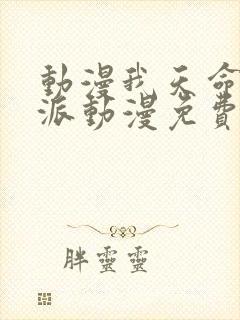 動漫我天命
派動漫免費
胖靈靈